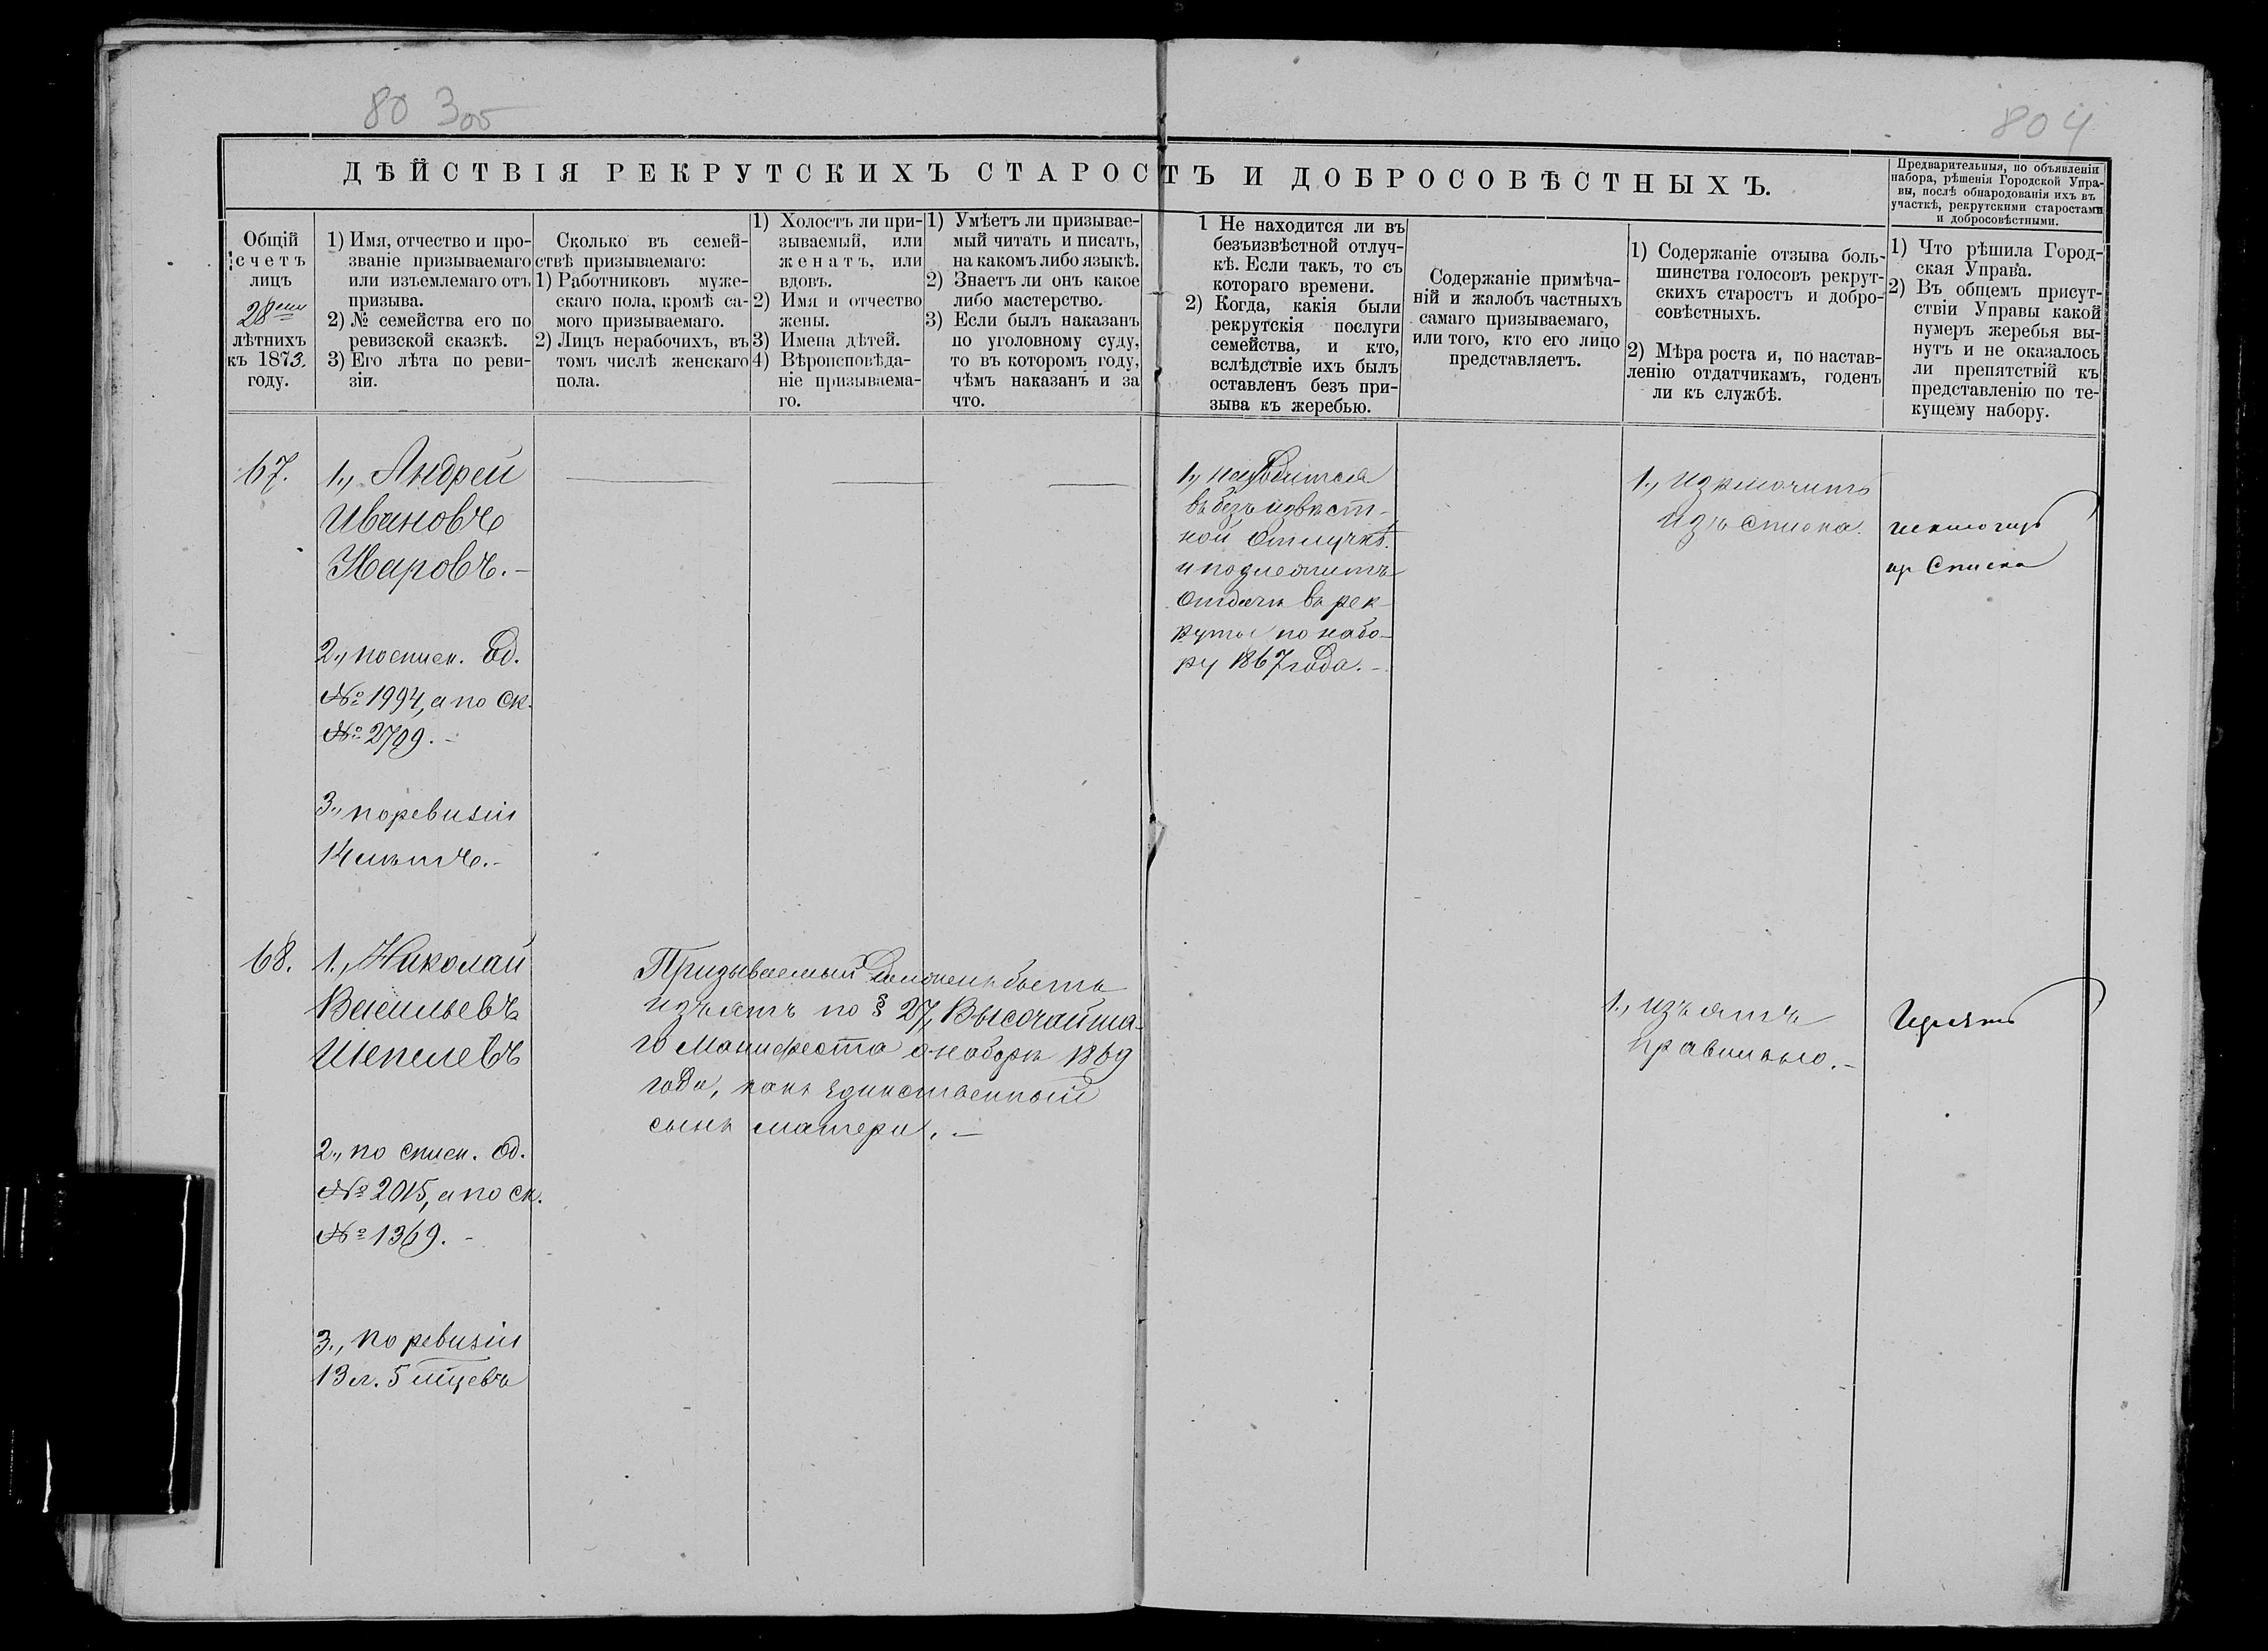 80 3об
804
ДѢЙСТВІЯ РЕКРУТСКИХЪ СТАРОСТЪ И ДОБРОСОВѢСТНЫХЪ.
Предварительныя, по объявленіи
набора, рѣшенія Городской Упра-
вы, послѣ обнародованія ихъ въ
участкѣ, рекрутскими старостами
и добросовѣстными.
Общій
счетъ
лицъ
28ми
лѣтнихъ
къ 1873.
году.
1) Имя, отчество и про-
званіе призываемаго
или изъемлемаго отъ
призыва.
2) № семейства его по
ревизской сказкѣ.
3) Его лѣта по реви-
зіи.
Сколько въ семей-
ствѣ призываемаго:
1) Работниковъ муже-
скаго пола, кромѣ са-
мого призываемаго.
2) Лицъ нерабочихъ, въ
томъ числѣ женскаго
пола.
1) Холостъ ли при-
зываемый, или
женатъ, или
вдовъ.
2) Имя и отчество
жены.
3) Имена дѣтей.
4) Вѣроисповѣда-
ніе призываема-
го.
1) Умѣетъ ли призывае-
мый читать и писать,
на какомъ либо языкѣ.
2) Знаетъ ли онъ какое
либо мастерство.
3) Если былъ наказанъ
по уголовному суду,
то въ которомъ году,
чѣмъ наказанъ и за
что.
1 Не находится ли въ
безъизвѣстной отлуч-
кѣ. Если такъ, то съ
котораго времени.
2) Когда, какія были
рекрутскія послуги
семейства, и кто,
вслѣдствіе ихъ былъ
оставленъ безъ при-
зыва къ жеребью.
Содержаніе примѣча-
ній и жалобъ частныхъ
самаго призываемаго,
или того, кто его лицо
представляетъ.
1) Содержаніе отзыва боль-
шинства голосовъ рекрут-
скихъ старостъ и добро-
совѣстныхъ.
2) Мѣра роста и, по настав-
ленію отдатчикамъ, годенъ
ли къ службѣ.
1) Что рѣшила Город-
ская Управа.
2) Въ общемъ присут-
ствіи Управы какой
нумеръ жеребья вы-
нутъ и не оказалось
ли препятствій къ
представленію по те-
кущему набору.
67.
1., Андрей
Ивановъ
Уваровъ.-
2., по списк. Од.
№ 1994, а по ск.
№ 2709.-
3., по ревизіи
14 лѣтъ.-
1., находится
въ безъизвѣст-
ной отлучкѣ.
и подлежитъ
отдачѣ въ рек-
руты по набо-
ру 1867 года.-
1., Исключить
изъ списка.
исключить
из списка
68.
1., Николай
Васильевъ
Шепелевъ
2., по списк. Од.
№ 2015, а по ск.
№ 1369.-
3., по ревизіи
13 л. 5 мцевъ
Призываемый долженъ быть
изъятъ по § 27, Высочайша-
го Манифеста о наборѣ 1869
года, какъ единственный
сынъ матери.-
1., изъятъ
правильно.-
Изъять